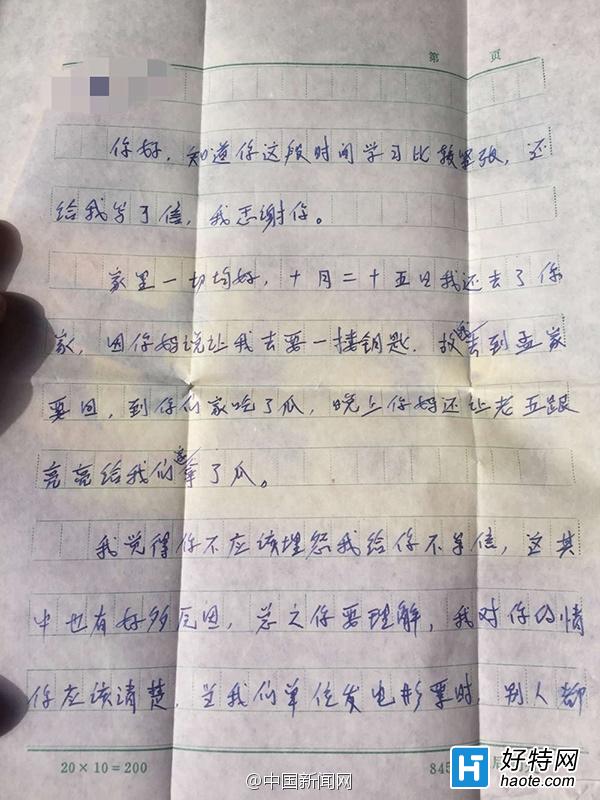 第 页
你好,知道你这段时间学习比较紧张,还
给我写了信,我感谢你。
家里一切均好,十月二十五日我还去了你
家,因你妈说让我去要一接钥匙.故送去到孟家
要回,到你们家吃了瓜,晚上你妈还让老五跟
亮亮给我们送拿了瓜。
我觉得你不应该埋怨我给你不写信,这其
中也有好多原因,总之你要理解,我对你的情
你应该清楚,当我们单位发电影票时,别人都
20×10=200
845
@中国新闻网
好特网
haote.com